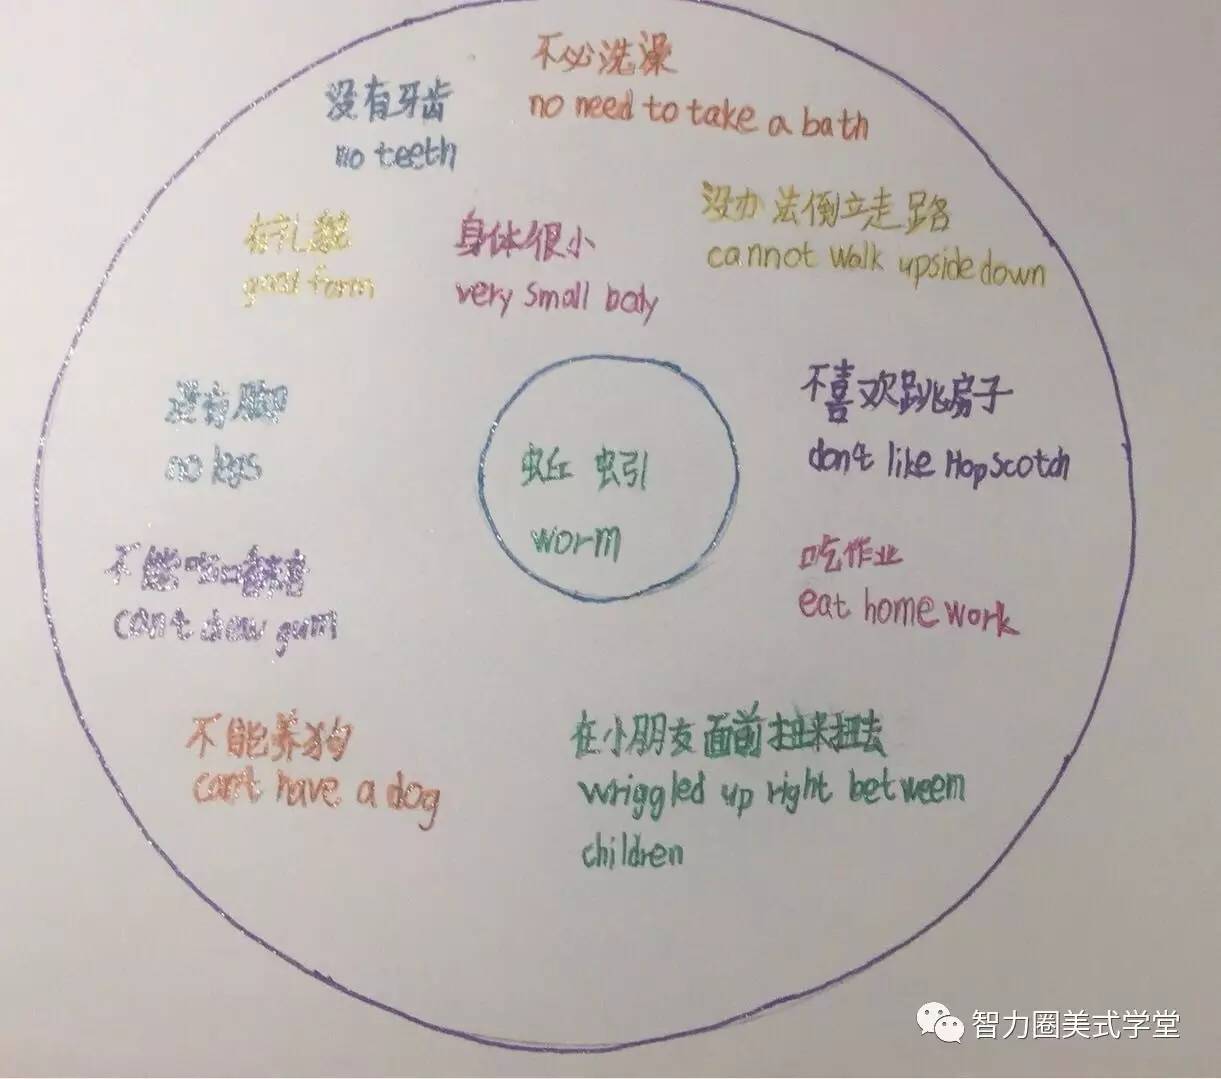 不必洗澡
no need to take a bath
没有牙齿
no teeth
没办法倒立走路
cannot walk upside down
有礼貌
good form
身体很小
very small body
不喜欢跳房子
don't like Hopscotch
没有脚
no legs
蚯蚓
worm
吃作业
eat home work
不能吃口香糖
can't chew gum
不能养狗
can't have a dog
在小朋友面前扭来扭去
wriggled up right between
children
智力圈美式学堂